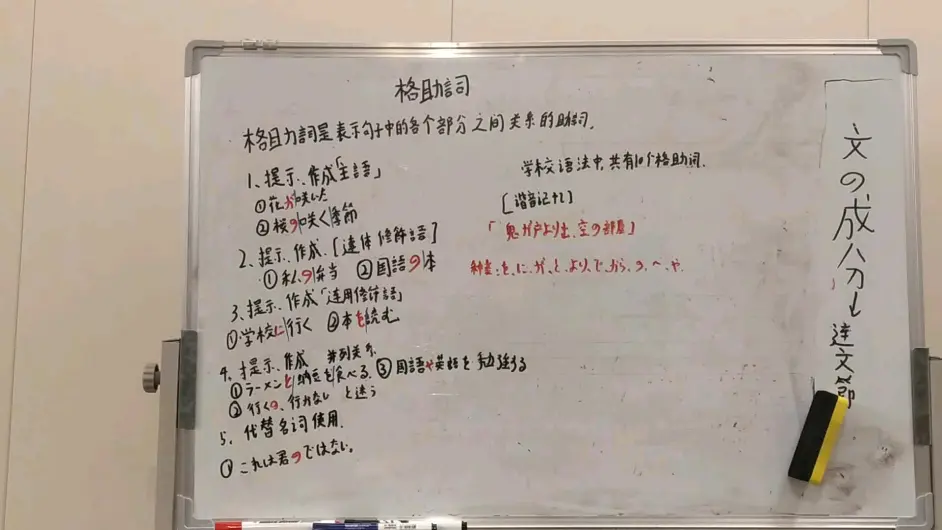 格助詞
格助詞是表示句子中的各个部分之间关系的助詞.
1、提示、作成「主語」
①花が咲いた
②桜の咲く季節
2、提示、作成.[連体修飾語]
①私の弁当 ②国語の本
3、提示、作成「連用修飾語」
①学校に行く ②本を読む
4、提示、作成 并列关系
①ラーメンと納豆を食べる. ③国語や英語を勉強する
②行くの、行かない と迷う
5、代替名词使用.
①これは君のではない。
学校语法中,共有10个格助词.
[谐音记忆]
「鬼が戸より出、空の部屋」
を、に、が、と、より、で、から、の、へ、や.
文の成分↓
連文節